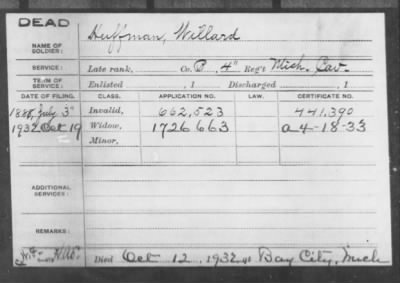 DEAD
NAME OF SOLDIER: Huffman, Willard
SERVICE: Late rank, Co. B, 4" Reg't Mich. Cav.
TERM OF SERVICE: Enlisted , 1 Discharged , 1
DATE OF FILING. CLASS. APPLICATION NO. LAW. CERTIFICATE NO.
July 3" Invalid, 662,523 441,390
1932 Oct 19 Widow, 1726663 a 4-18-33
Minor,
ADDITIONAL SERVICES:
REMARKS:
Died Oct 12, 1932 at Bay City, Mich